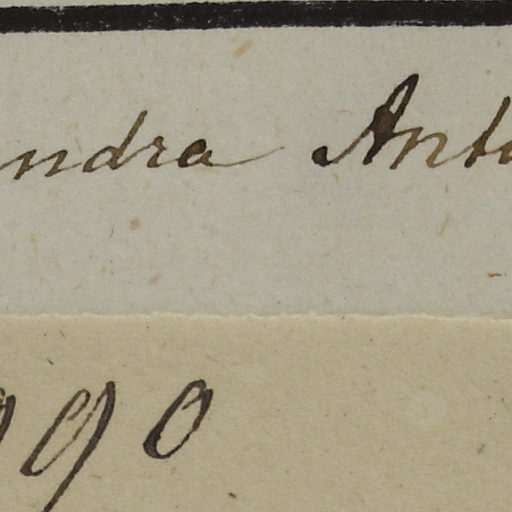 ndra Ant
90